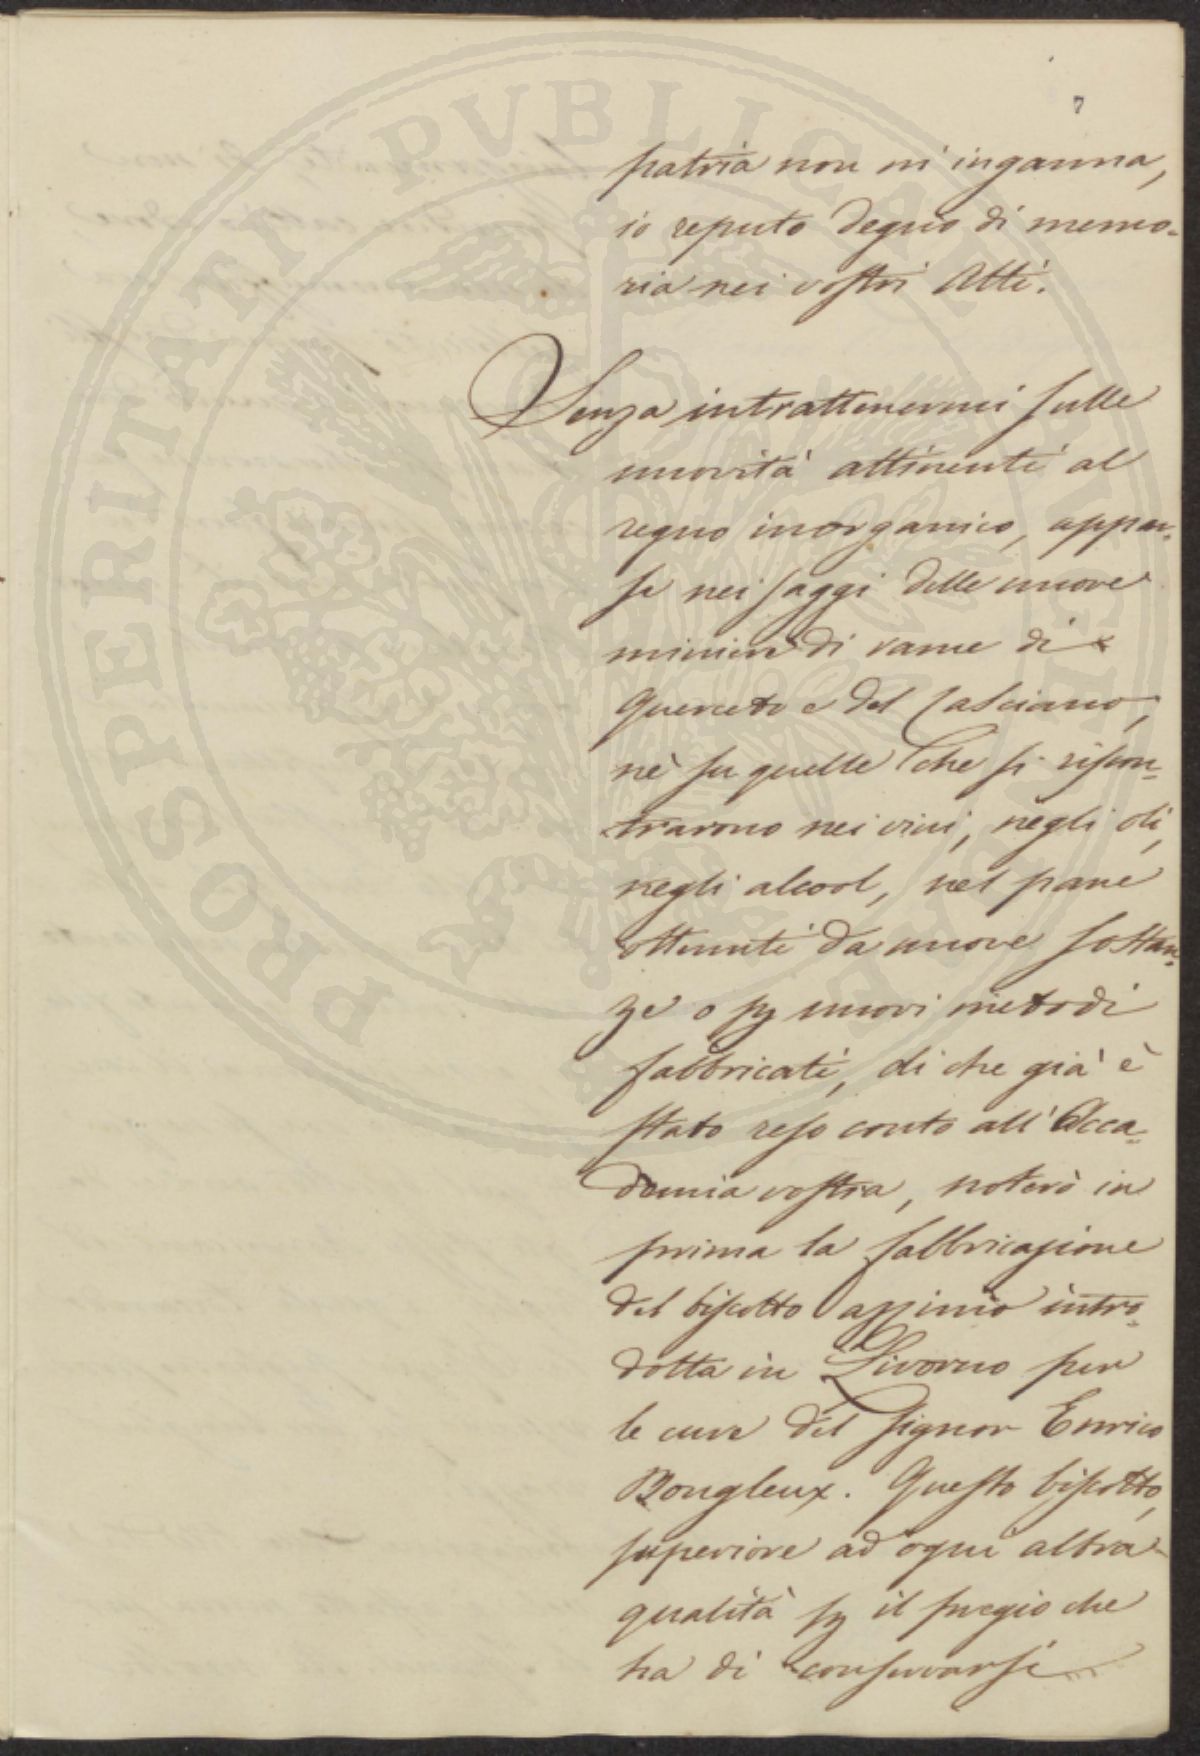 7
patria non m'inganna,
io reputo degno di memo-
ria nei vostri Atti.
Senza intrattenermi sulle
nuovità attinenti al
regno inorganico, appar-
se nei saggi delle nuove
miniere di rame di
Querceto e del Casciano,
nè su quelle che si riscon-
trarono nei vini, negli oli,
negli alcool, nel pane
ottenuti da nuove sostan-
ze o p nuovi metodi
fabbricati, di che già è
stato reso conto all'Acca-
demia vostra, noterò in
prima la fabbricazione
del biscotto azzimo intro-
dotta in Livorno per
le cure del Signor Enrico
Bougleux. Questo biscotto,
superiore ad ogni altra
qualità p il pregio che
ha di conservarsi
PROSPERITATI PVBLICAE AVGENDAE